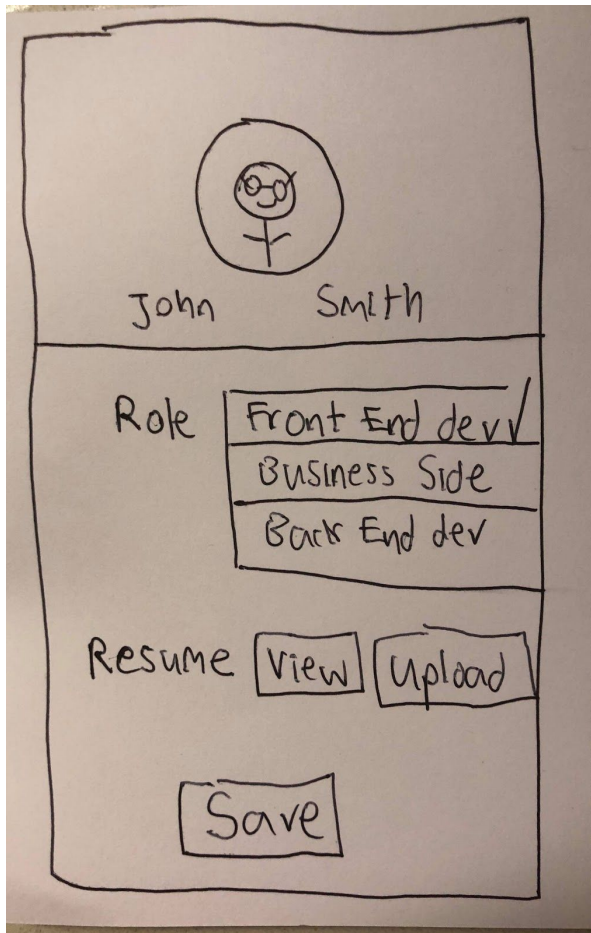 John Smith
Role Front End dev
Business Side
Back End dev
Resume View Upload
Save